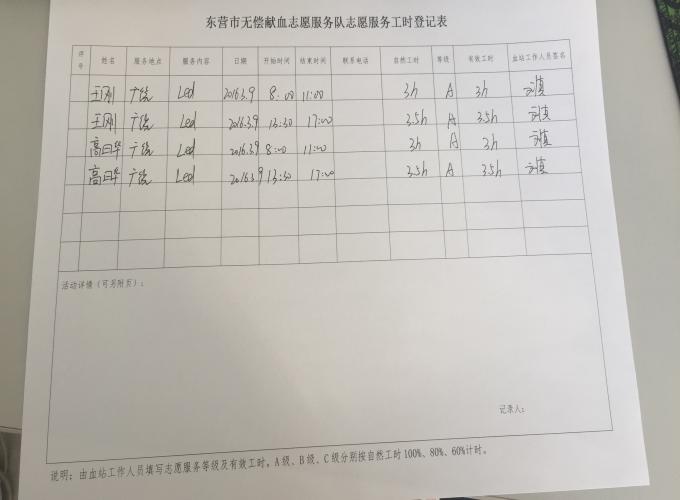 东营市无偿献血志愿服务队志愿服务工时登记表
序号 姓名 服务地点 服务内容 日期 开始时间 结束时间 联系电话 自然工时 等级 有效工时 血站工作人员签名
王刚 广饶 Led 2016.3.9 8:00 11:00 3h A 3h
王刚 广饶 Led 2016.3.9 13:30 17:00 3.5h A 3.5h
高曰华 广饶 Led 2016.3.9 8:00 11:00 3h A 3h
高曰华 广饶 Led 2016.3.9 13:30 17:00 3.5h A 3.5h
活动详情（可另附页）：
记录人：
说明：由血站工作人员填写志愿服务等级及有效工时。A级、B级、C级分别按自然工时100%、80%、60%计时。